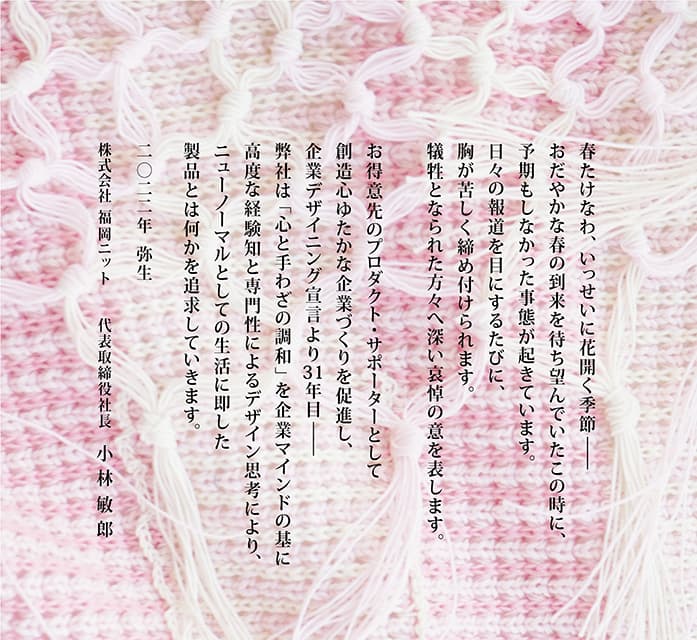 春たけなわ、いっせいに花開く季節――
おだやかな春の到来を待ち望んでいたこの時に、
予期もしなかった事態が起きています。
日々の報道を目にするたびに、
胸が苦しく締め付けられます。
犠牲となられた方々へ深い哀悼の意を表します。
お得意先のプロダクト・サポーターとして
創造心ゆたかな企業づくりを促進し、
企業デザイニング宣言より31年目――
弊社は「心と手わざの調和」を企業マインドの基に
高度な経験知と専門性によるデザイン思考により、
ニューノーマルとしての生活に即した
製品とは何かを追求していきます。
二〇二二年 弥生
株式会社 福岡ニット 代表取締役社長 小林敏郎